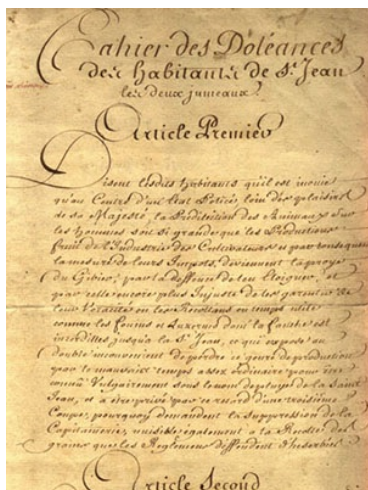 Cahier des Doléances
des habitants de St. Jean
les deux jumeaux.
Article Premier
Disent lesdits habitants qu'il est inouie
qu'au Centre d'un Etat Policé, loin des plaisirs
de sa Majesté, la Prédilection des Animaux sur
les hommes soit si grande que les Productions
fruit de l'Industrie des Cultivateurs et par conséquent
la mesure de leurs Impots, deviennent la proye
du Gibier, par la deffense de les Eloigner, et
par celle encore plus Injuste de les garentir de
leur Voracité ou les Recoltes en temps utile
comme les foins et Luzernes dont la fauche est
interdittes jusqu'à la St. Jean, ce qui expose au
double inconvenient de perdre ce genre de production
par le mauvais temps assez ordinaire pour être
connu Vulgairement sous le nom de pluye de la Saint
Jean, et à être privé par ce retard d'une troisième
Coupe, pourquoy demandent la suppression de la
Capitainerie, nuisible également à la Récolte des
grains que les Reglemens deffendent d'herber
Article Second